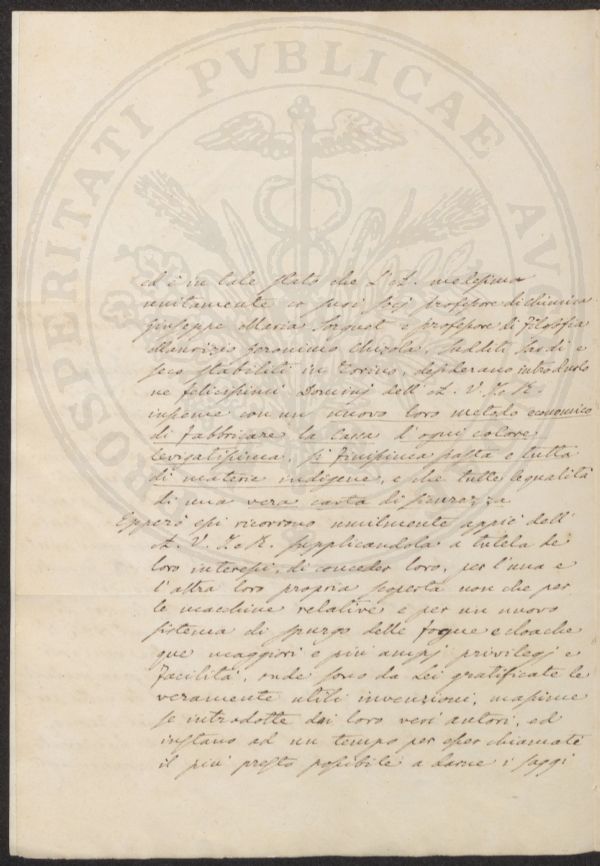 PROSPERITATI PVBLICAE AVG
ed è in tale stato che l'A. medesima
unitamente co suoi socj professore di chimica
Giuseppe Maria e professore di Filosofia
Maurizio Geronimo sudditi Sardi e
seco stabiliti in Torino, desiderano introdurlo
ne felicissimi Dominj dell' A. V. I. e R.
insieme con un nuovo loro metodo economico
di fabbricare la carta d'ogni colore
levigatissima, di finissima pasta e tutta
di materie indigene, e che tutte le qualità
di una vera carta di sicurezza
Epperò essi ricorrono umilmente appiè dell'
A. V. I. e R. supplicandola a tutela de
loro interessi, di conceder loro, per l'una e
l'altra loro propria scoperta non che per
le macchine relative e per un nuovo
sistema di spurgo delle fogne e cloache
que maggiori e più ampj privilegj e
facilità, onde sono da Lei gratificate le
veramente utili invenzioni, massime
se introdotte dai loro veri autori, ed
instano ad un tempo per esser chiamati
il più presto possibile a darne i saggi